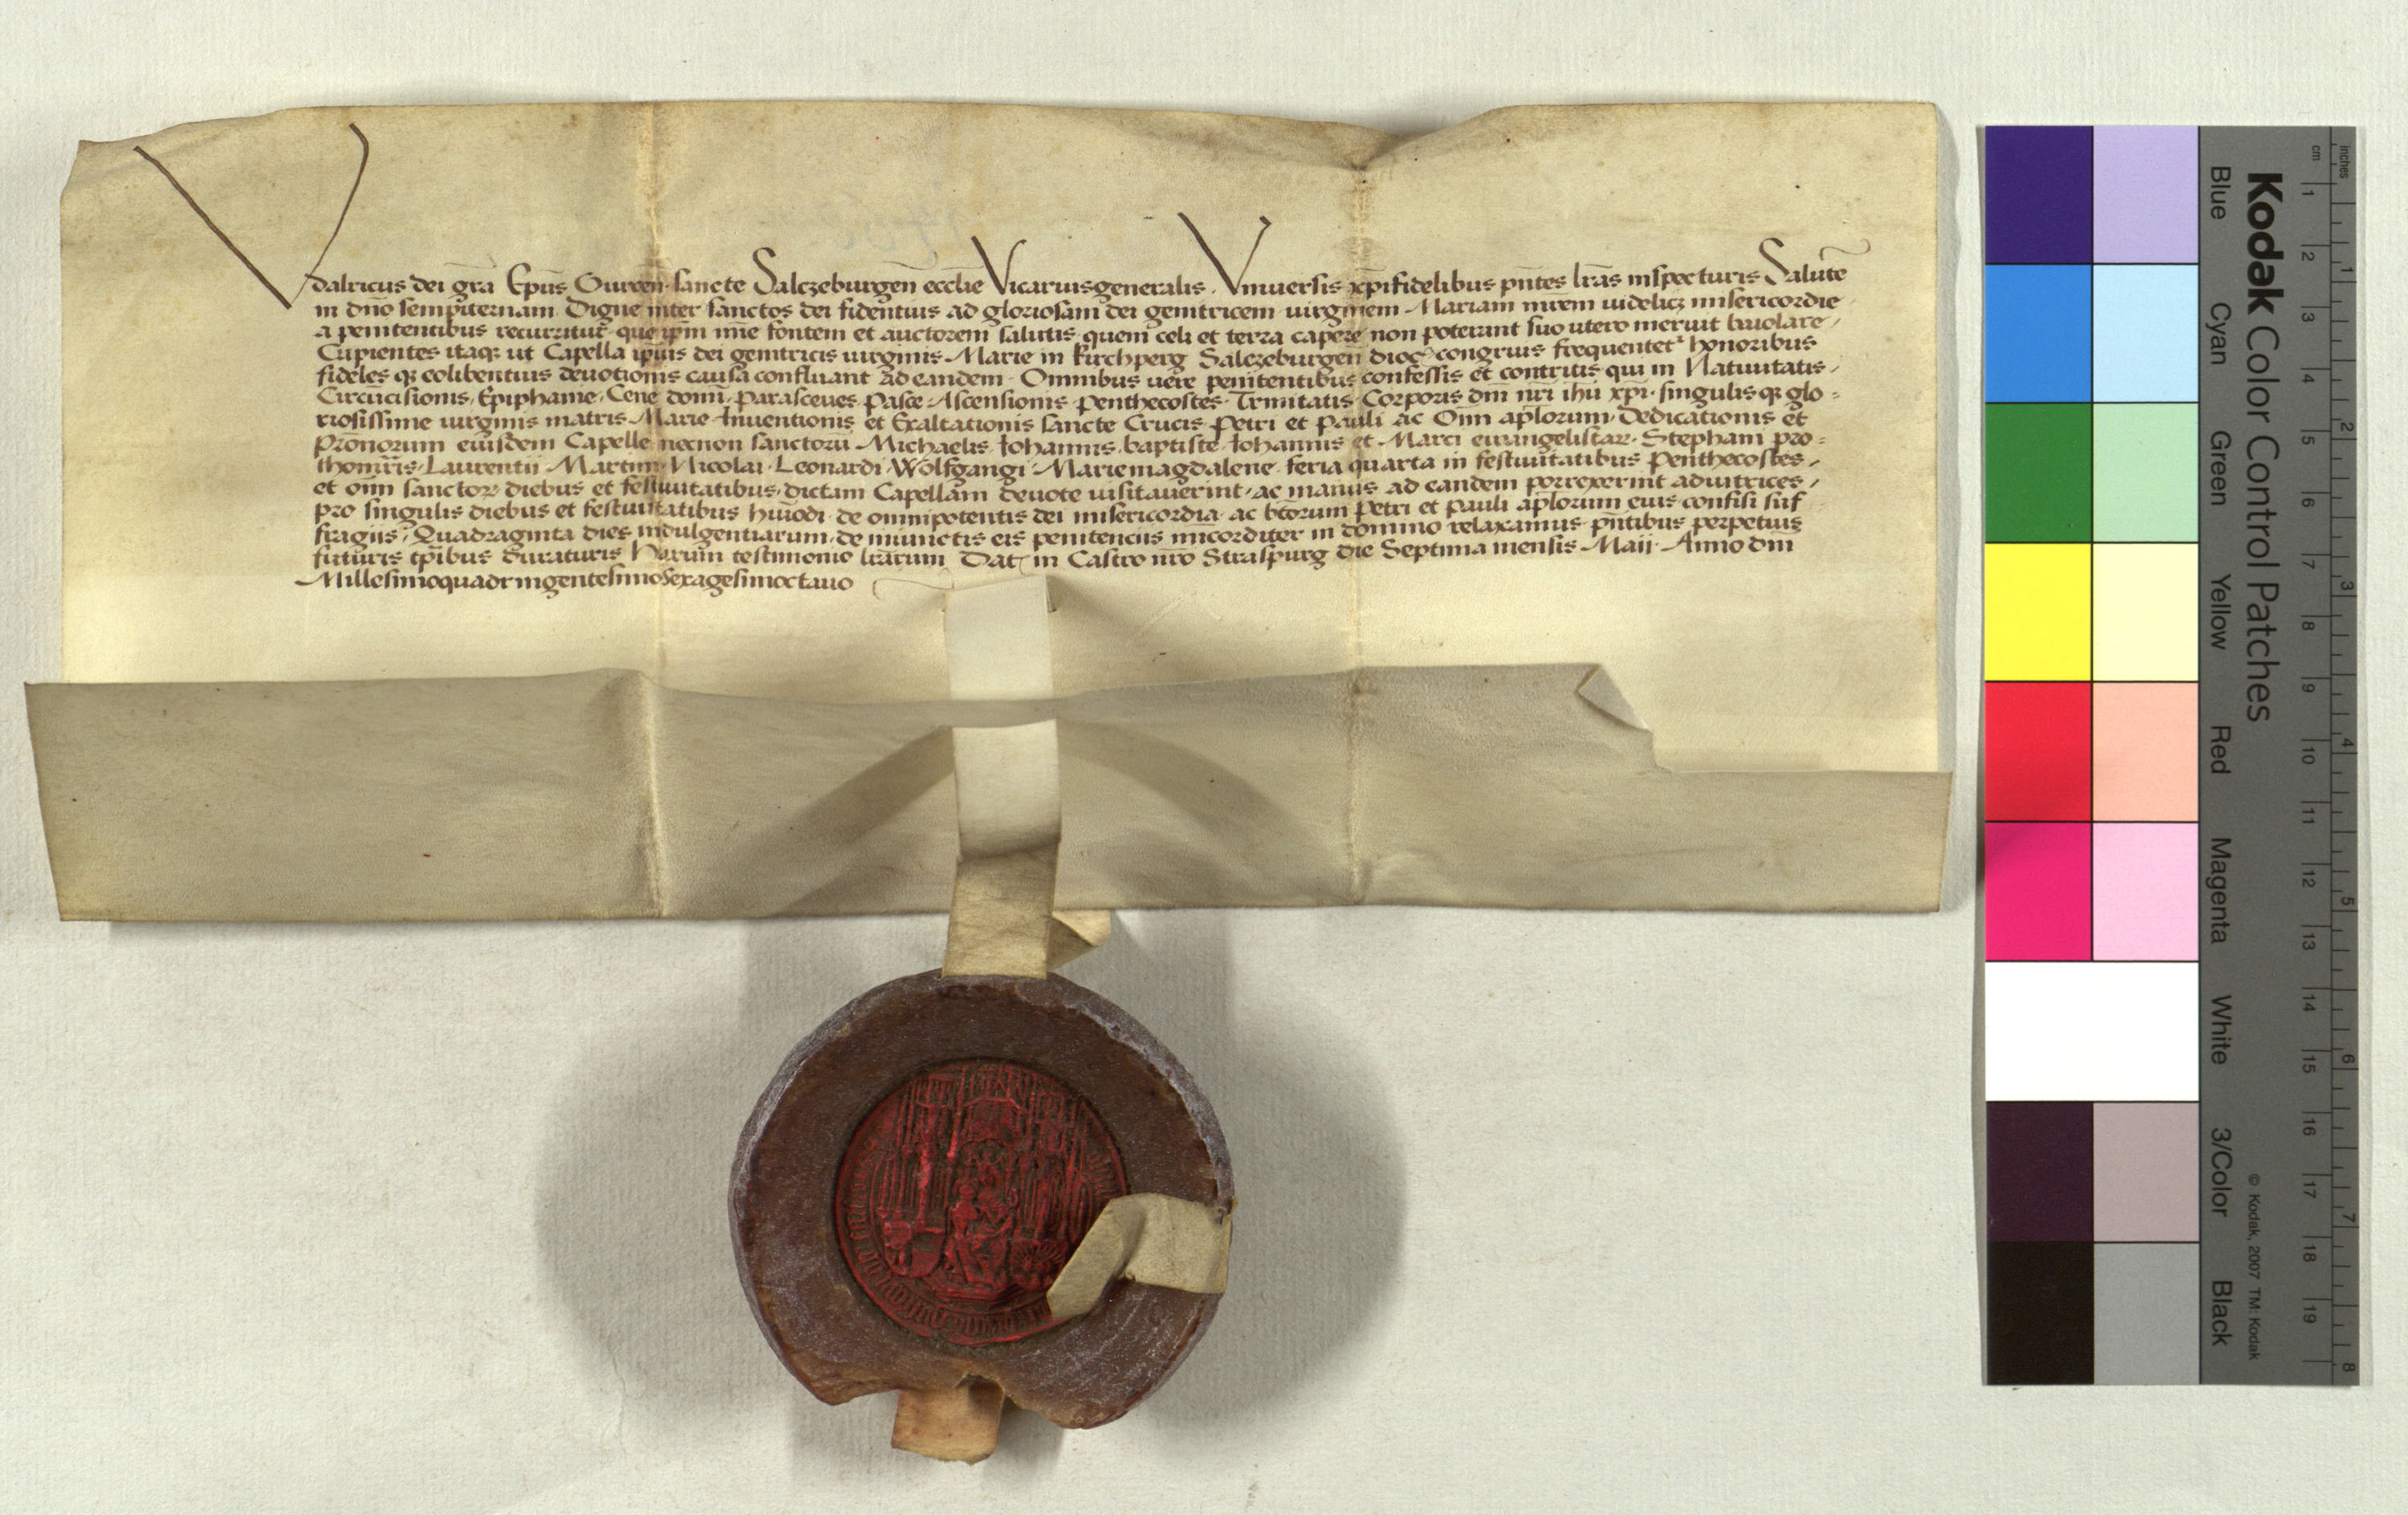 Vdalricus dei gr̄a Ep̄us Gurcen̄ sancte Salczeburgen̄ eccl̄ie Vicariusgeneralis. Vniuersis xp̄ifidelibus pn̄tes lr̄as inspecturis Salutē
in dn̄o sempiternam Digne inter sanctos dei fidentius ad gloriosam dei genitricem uirginem Mariam mr̄em uidelicꝫ misericordie
a penitentibus recurritur que ip̄m mīe fontem et auctorem salutis quem celi et terra capere non poterant suo utero meruit baiolare
Cupientes itaqꝫ ut Capella ip̄ius dei genitricis uirginis Marie in kirchperg Salczeburgen̄ dioc̄ congruis frequentet᷑ honoribus
fideles qꝫ eolibentius deuotionis causa confluant ad eandem. Omnibus uere penitentibus confessis et contritis qui in Natiuitatis
Circūcisionis, Epiphanie, Cene domī, parasceues pasce Ascensionis penthecostes Trinitatis Corporis dn̄i nr̄i ihū xp̄i singulis qꝫ glo-
riosissime uirginis matris Marie Inuentionis et Exaltationis sancte Crucis petri et pauli ac Om̄ ap̄lorum Dedicationis et
pr̄onorum eiusdem Capelle necnon sanctorū Michaelis Iohannis baptiste Iohannis et Marci euangelistaꝝ Stephani pro-
thomr̄is, Laurentii Martini Nicolai Leonardi Wolfgangi Mariemagdalene feria quarta in festiuitatibus penthecostes
et om̄ sanctoꝝ diebus et festiuitatibus dictam Capellam deuote uisitauerint, ac manus ad eandem porrexerint adiutrices,
pro singulis diebus et festiuitatibus hmōi de omnipotentis dei misericordia ac bt̄orum petri et pauli ap̄lorum eius confisi suf
fragiis, Quadraginta dies indulgentiarum de iniunctis eis penitenciis mīcorditer in domino relaxamus pn̄tibus perpetuis
futuris tp̄ibus duraturis Harum testimonio lr̄arum Dat̄ in Castro nr̄o Straspurg die Septima mensis Maii Anno dn̄i
Millesimoquadringentesimosexagesimoctauo
Kodak Color Control Patches
Blue Cyan Green Yellow Red Magenta White 3/Color Black
© Kodak, 2007 TM: Kodak
cm 1 2 3 4 5 6 7 8 9 10 11 12 13 14 15 16 17 18 19
inches 1 2 3 4 5 6 7 8